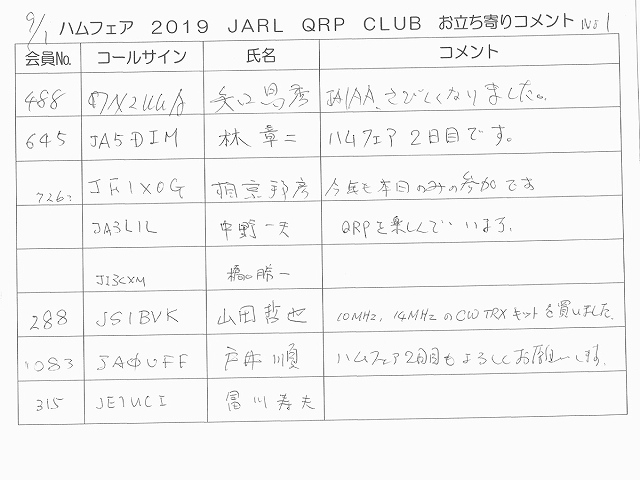 9/1 ハムフェア 2019 JARL QRP CLUB お立ち寄りコメント No 1
会員No. コールサイン 氏名 コメント
488 7N2UUA 矢口 秀 JA1AA、さびしくなりました。
645 JA5DIM 林 章二 ハムフェア2日目です。
726 JF1XOG 邦彦 今年も本日のみの参加です
JA3LIL 中野一夫 QRPを楽しんでいます。
JI3CXM 橋 勝一
288 JS1BVK 山田哲也 10MHz, 14MHzのCW TRXキットを買いました.
1083 JAΦUFF 戸井 順 ハムフェア2日目もよろしくお願いします。
315 JE1UCI 冨川寿夫